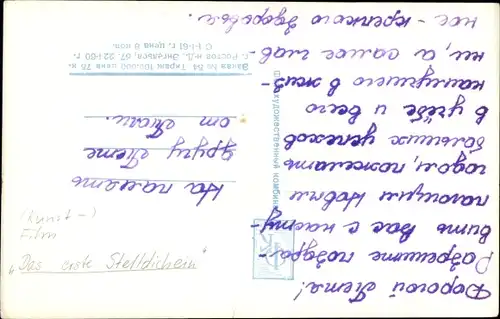 Дорогой Петя!
Разрешите поздра-
вить Вас с насту-
пающим Новым
годом, пожелать
больших успехов
в учёбе и всего
наилучшего в жиз-
ни, а самое глав-
ное - крепкого здоровья.
На память
другу Пете
от Толи.
художественный комбинат
Заказ № 84 Тираж 100.000 цена 75 к.
г. Ростов н/Д. Энгельса, 67. 22-I-60 г.
С 1-I-61 г. цена 8 коп.
(Kunst-)
Film
„Das erste Stelldichein"